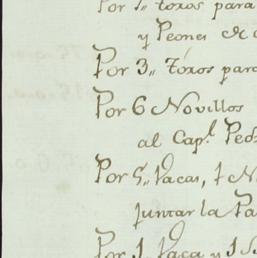 Por 1" toros para
y Peones de
Por 3" Toros para
Por 6 Novillos
al Cap.l Ped
Por 5" Vacas, 1 N
juntar la Pa
Por 1 Vaca y 1